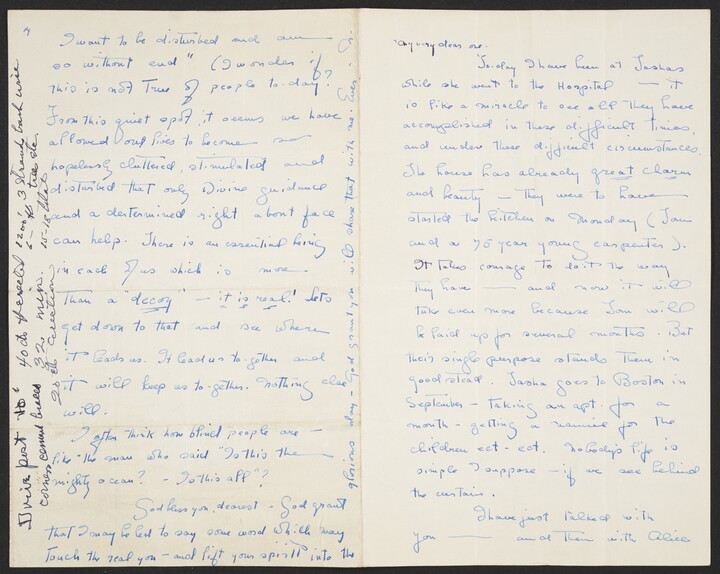 My very dear one.
To-day I have been at Tashas
while she went to the Hospital — it
is like a miracle to see all they have
accomplished in these difficult times,
and under these difficult circumstances.
The house has already great charm
and beauty — they were to have
started the kitchen on Monday (Tom
and a 75 year young carpenter).
It takes courage to do it the way
they have — and now it will
take even more because Tom will
be laid up for several months. But
their single purpose stands them in
good stead. Tasha goes to Boston in
September - taking an apt. for a
month - getting a nannie for the
children ect - ect. Nobody's life is
simple I suppose — if we see behind
the curtain.
I have just talked with
you — and then with Alice
4
I want to be disturbed and am
so without end" (I wonder if
this is not True of people to-day?
From this quiet spot, it seems we have
allowed our lives to become so
hopelessly cluttered, stimulated and
disturbed that only Divine guidance
and a determined right about face
can help. There is an essential being
in each of us which is more
Than a "decoy" — it is real! Lets
get down to that and see where
it leads us. It lead us to-gether and
it will keep us to-gether. Nothing else
will.
I often think how blind people are —
like "the man who said "Is this the —
mighty ocean? - Is this all"?
God bless you, dearest - God grant
that I may be led to say some word which may
Touch the real you — and lift your spirit into the
glorious day - God grant you will share that with me. Ever
Drive post 40 cts erected 1200' 3 strands barb wire
corners cement 32 min.
20 cts erection